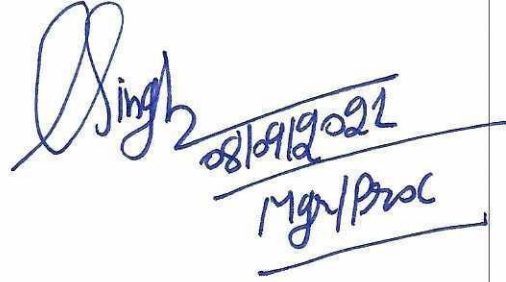 Singh
08/09/2021
Mgr/Proc